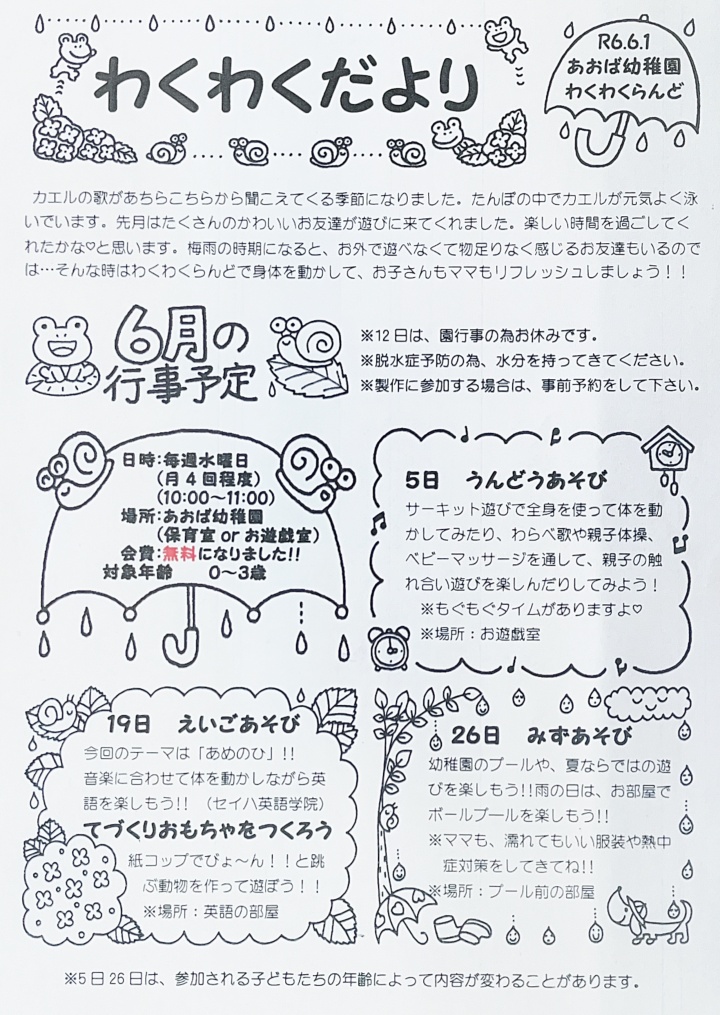 わくわくだより
R6.6.1
あおば幼稚園
わくわくらんど
カエルの歌があちらこちらから聞こえてくる季節になりました。たんぼの中でカエルが元気よく泳
いでいます。先月はたくさんのかわいいお友達が遊びに来てくれました。楽しい時間を過ごしてく
れたかな♡と思います。梅雨の時期になると、お外で遊べなくて物足りなく感じるお友達もいるので
は…そんな時はわくわくらんどで身体を動かして、お子さんもママもリフレッシュしましょう！！
6月の
行事予定
※12日は、園行事の為お休みです。
※脱水症予防の為、水分を持ってきてください。
※製作に参加する場合は、事前予約をして下さい。
日時：毎週水曜日
（月４回程度）
（10：00～11：00）
場所：あおば幼稚園
（保育室 or お遊戯室）
会費：無料になりました!!
対象年齢　０～３歳
5日　うんどうあそび
サーキット遊びで全身を使って体を動
かしてみたり、わらべ歌や親子体操、
ベビーマッサージを通して、親子の触
れ合い遊びを楽しんだりしてみよう！
※もぐもぐタイムがありますよ♡
※場所：お遊戯室
19日　えいごあそび
今回のテーマは「あめのひ」!!
音楽に合わせて体を動かしながら英
語を楽しもう!!　（セイハ英語学院）
てづくりおもちゃをつくろう
紙コップでぴょ～ん！！と跳
ぶ動物を作って遊ぼう！！
※場所：英語の部屋
26日　みずあそび
幼稚園のプールや、夏ならではの遊
びを楽しもう!!雨の日は、お部屋で
ボールプールを楽しもう!!
※ママも、濡れてもいい服装や熱中
症対策をしてきてね!!
※場所：プール前の部屋
※5日26日は、参加される子どもたちの年齢によって内容が変わることがあります。